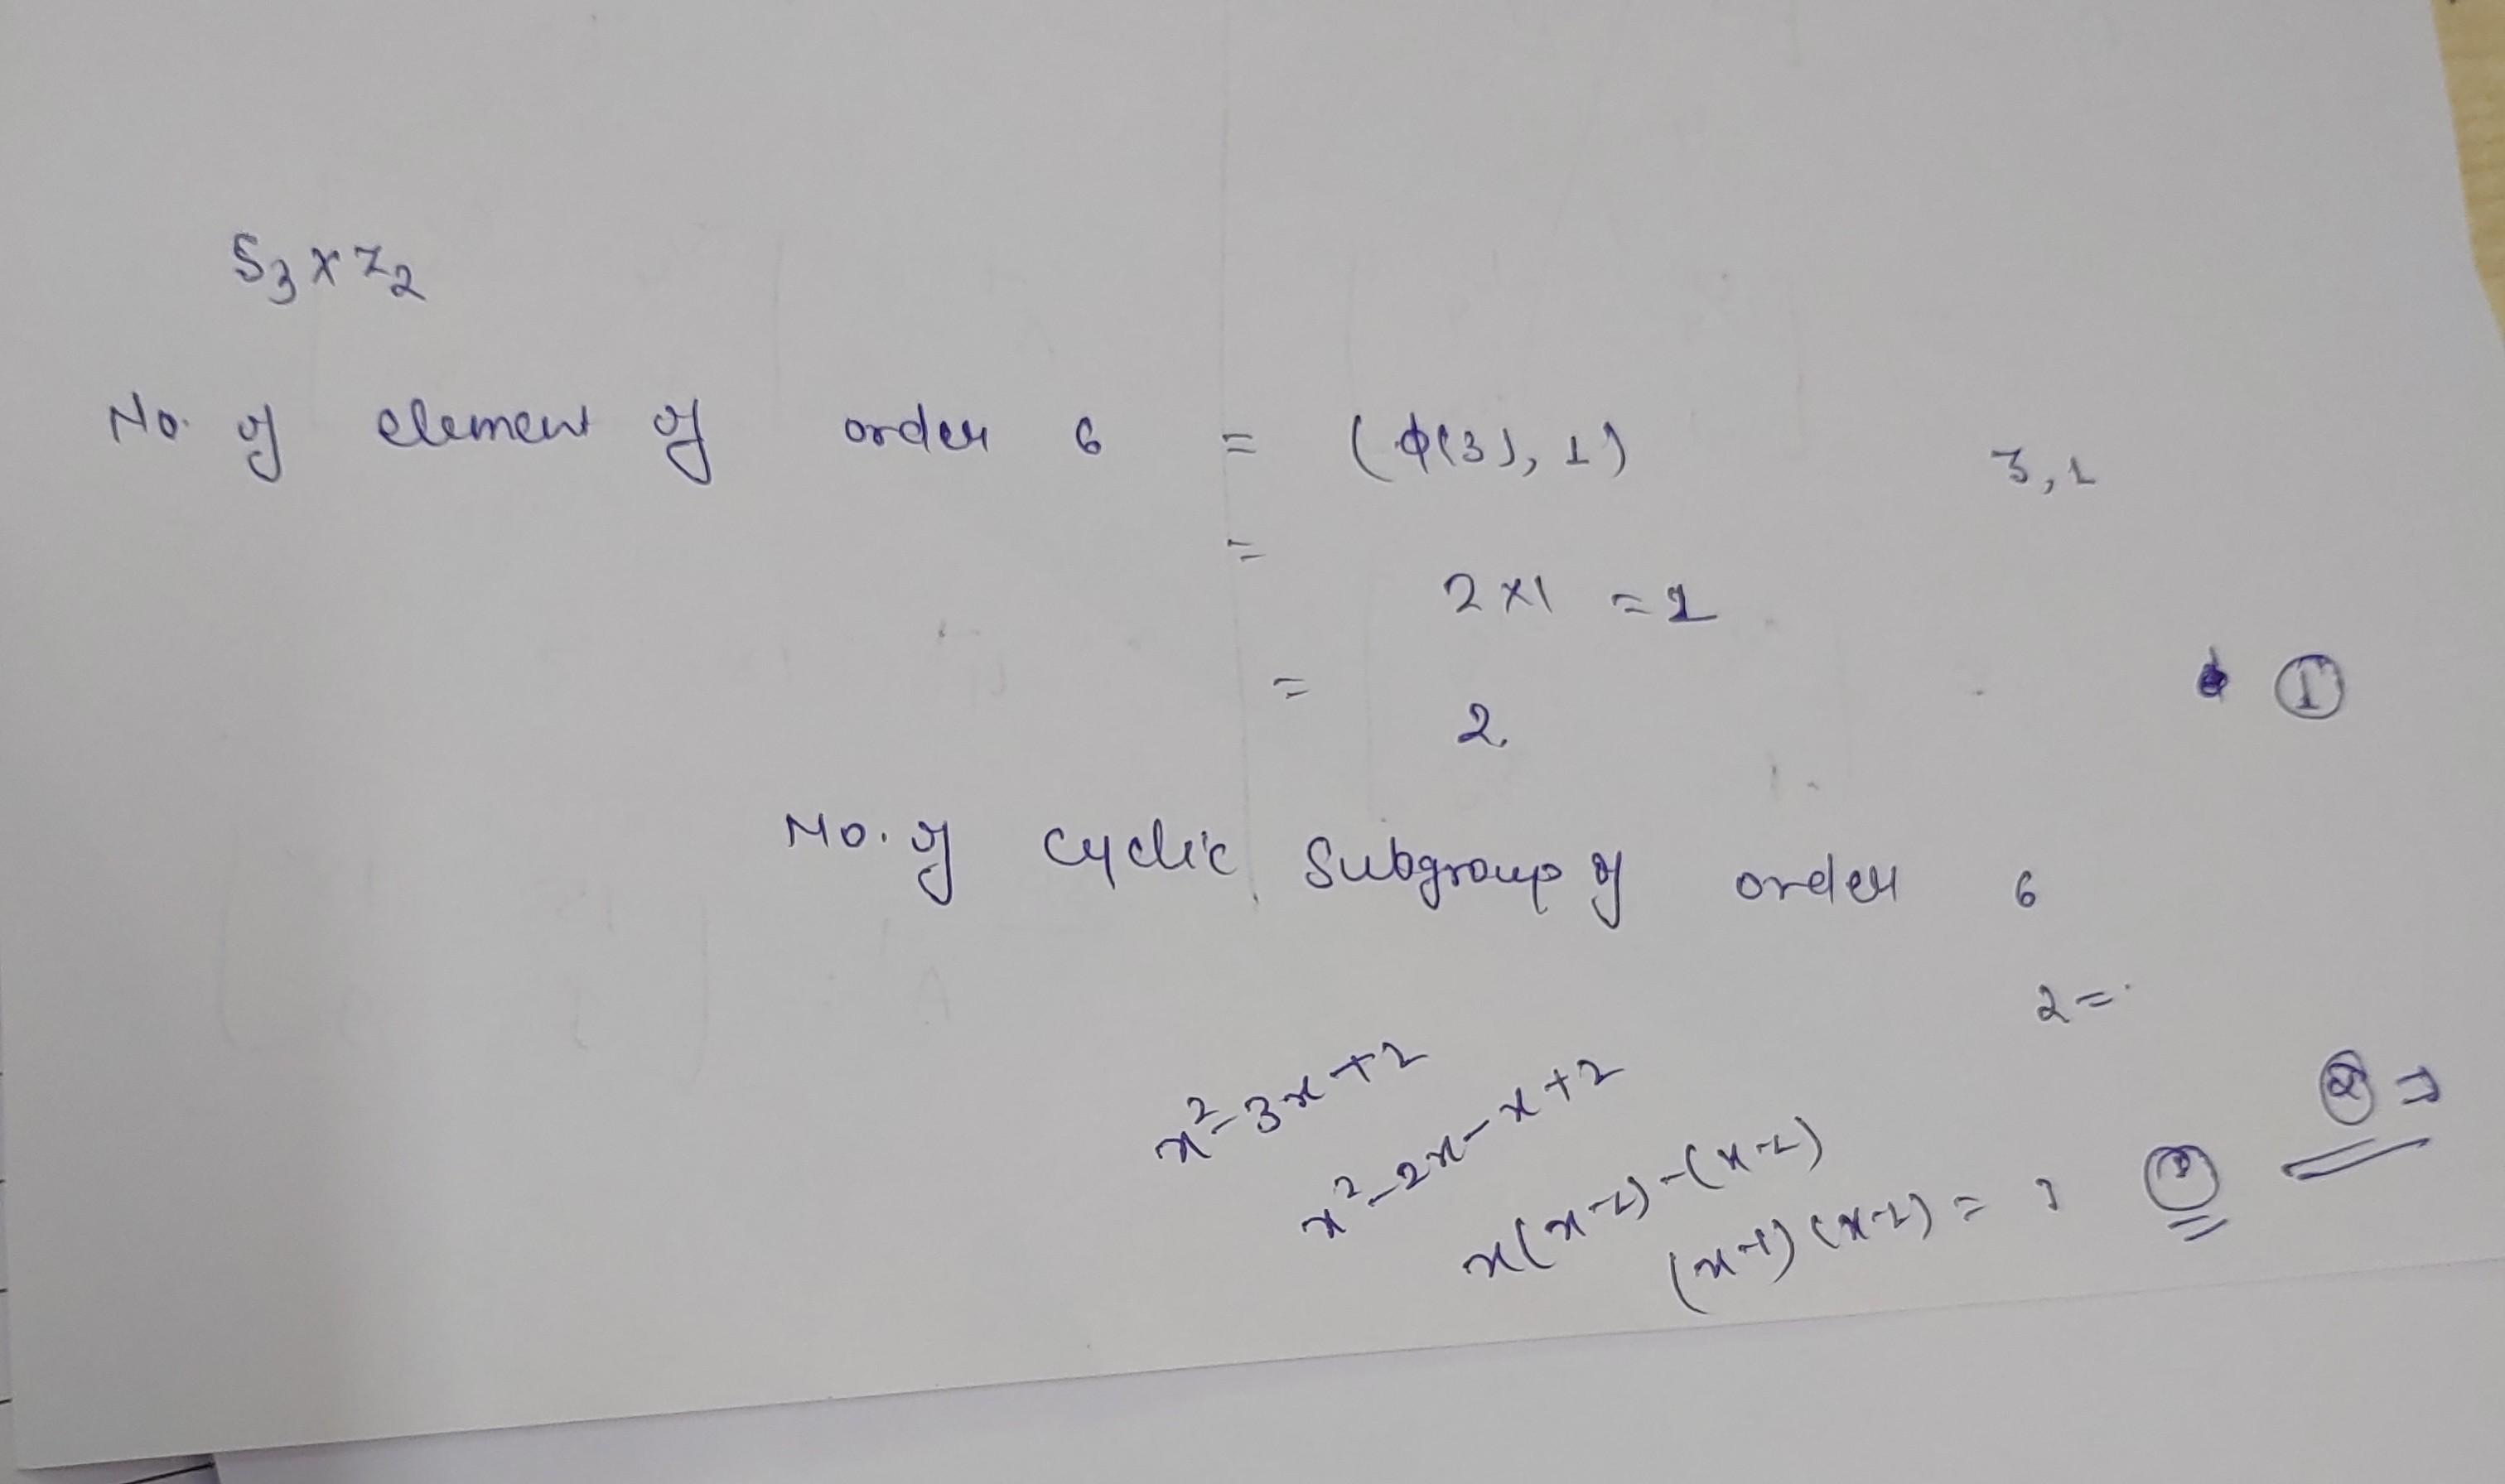 S₃ x Z₂
No. of element of order 6 = (ϕ(3), 1) 3, 1
= 2 x 1 = 1
= 2 ①
No. of cyclic Subgroup of order 6
2 =
x² - 3x + 2
x² - 2x - x + 2
x(x-2) - (x-2)
(x-1) (x-2) =